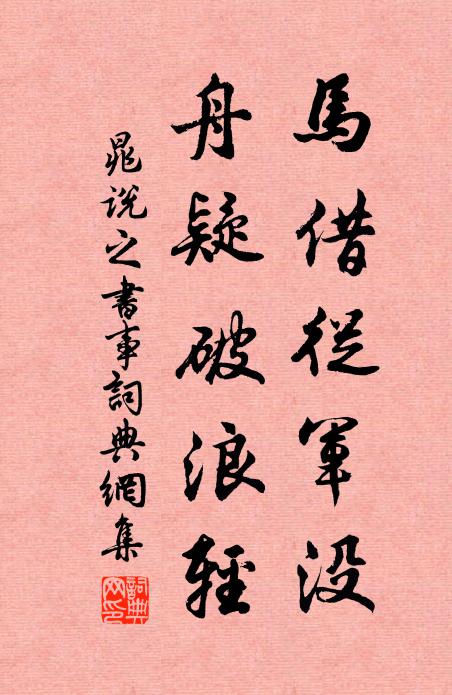 馬借從軍没
舟疑破浪輕
晁說之書事詞典網集
詞典网印